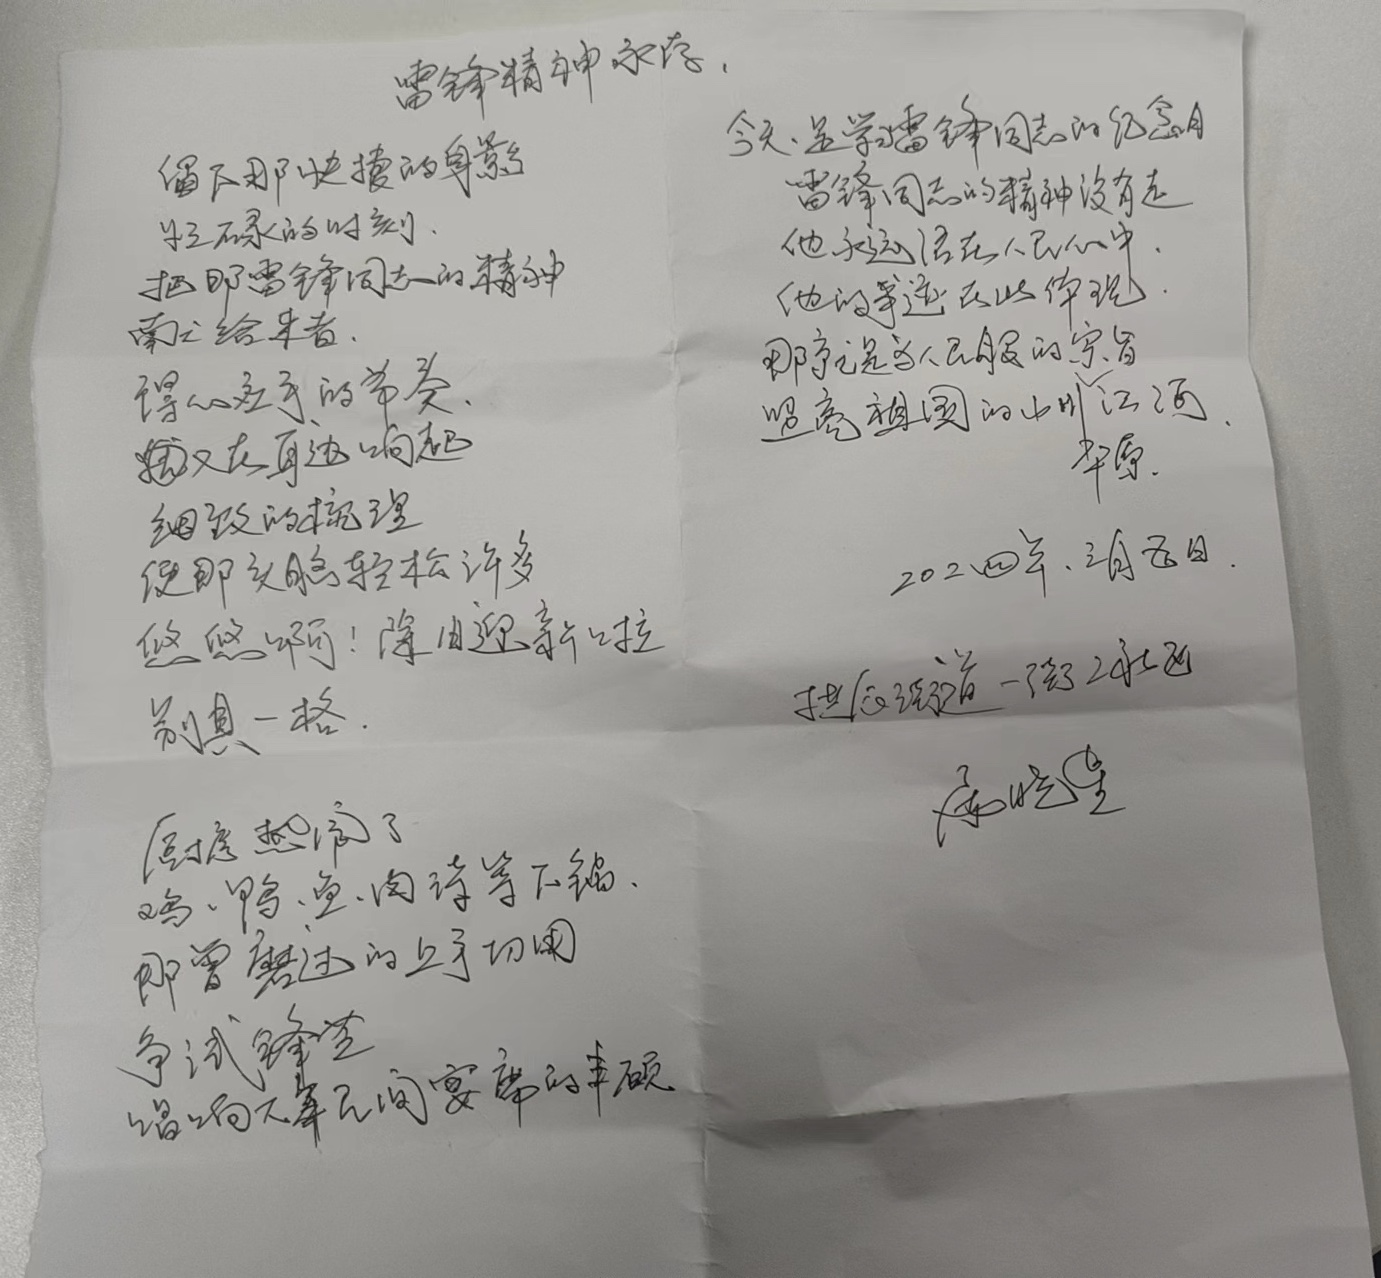 雷锋精神永存.
留下那快捷的身影
忙碌的时刻.
把那雷锋同志的精神
献给来者.
得心应手的节奏.
又在耳边响起
细致的梳理
使那头脑轻松许多
悠悠啊！除旧迎新啦
别具一格.
厨房热闹了
鸡、鸭、鱼、肉待等下锅.
那曾磨过的上手切用
争试锋芒
唱响军民间宴席的丰硕
今天、是学雷锋同志的纪念月
雷锋同志的精神没有走
他永远活在人民心中.
他的事迹在此体现.
那就是为人民服的宗旨
照亮祖国的山川江河.
平原.
202四年、三月五日.
街道一街社区
晓